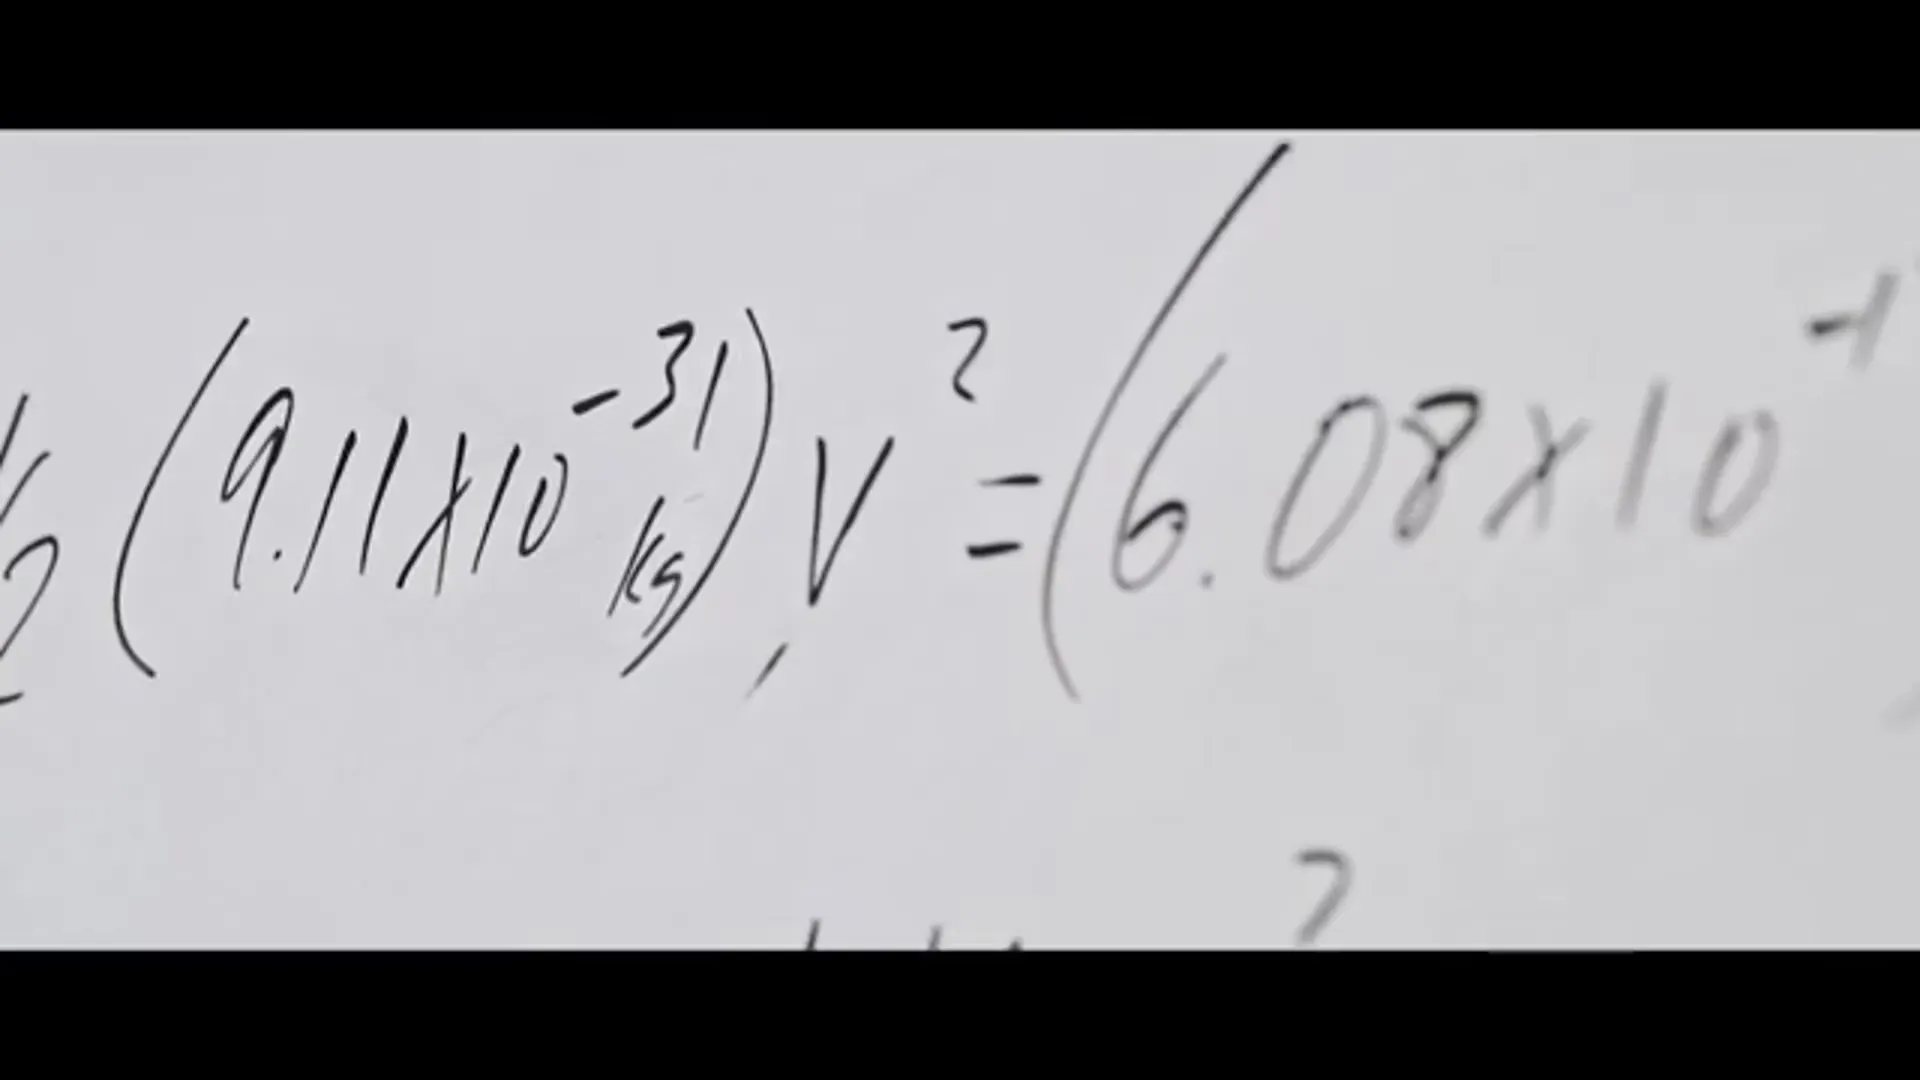 ½(9.11x10⁻³¹ kg)V² = (6.08x10⁻¹
2